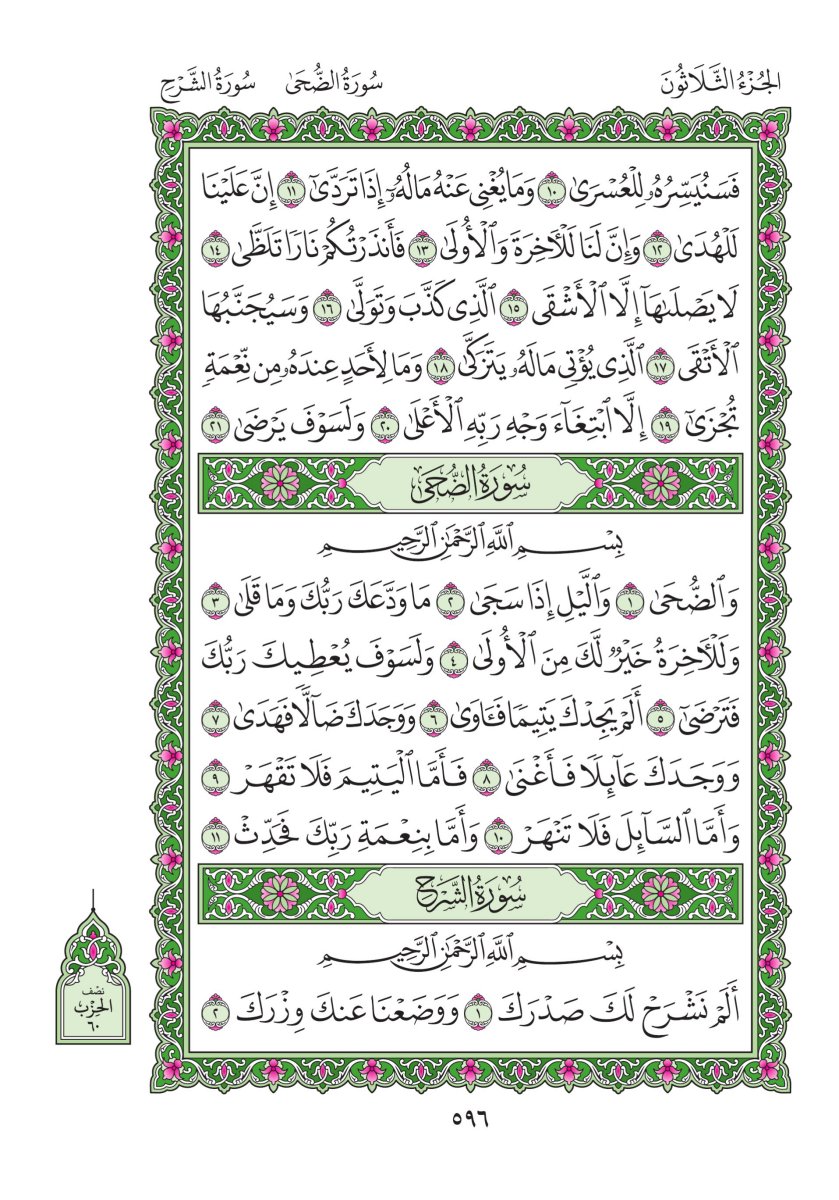 الجُزْءُ الثَّلَاثُونَ سُورَةُ الضُّحَىٰ سُورَةُ الشَّرْحِ
فَسَنُيَسِّرُهُۥ لِلْعُسْرَىٰ ١٠ وَمَا يُغْنِى عَنْهُ مَالُهُۥٓ إِذَا تَرَدَّىٰٓ ١١ إِنَّ عَلَيْنَا
لَلْهُدَىٰ ١٢ وَإِنَّ لَنَا لَلْأَخِرَةَ وَٱلْأُولَىٰ ١٣ فَأَنذَرْتُكُمْ نَارًا تَلَظَّىٰ ١٤
لَا يَصْلَىٰهَآ إِلَّا ٱلْأَشْقَى ١٥ ٱلَّذِى كَذَّبَ وَتَوَلَّىٰ ١٦ وَسَيُجَنَّبُهَا
ٱلْأَتْقَى ١٧ ٱلَّذِى يُؤْتِى مَالَهُۥ يَتَزَكَّىٰ ١٨ وَمَا لِأَحَدٍ عِندَهُۥ مِن نِّعْمَةٍ
تُجْزَىٰٓ ١٩ إِلَّا ٱبْتِغَآءَ وَجْهِ رَبِّهِ ٱلْأَعْلَىٰ ٢٠ وَلَسَوْفَ يَرْضَىٰ ٢١
سُورَةُ الضُّحَىٰ
بِسْمِ ٱللَّهِ ٱلرَّحْمَٰنِ ٱلرَّحِيمِ
وَٱلضُّحَىٰ ١ وَٱلَّيْلِ إِذَا سَجَىٰ ٢ مَا وَدَّعَكَ رَبُّكَ وَمَا قَلَىٰ ٣
وَلَلْأَخِرَةُ خَيْرٌ لَّكَ مِنَ ٱلْأُولَىٰ ٤ وَلَسَوْفَ يُعْطِيكَ رَبُّكَ
فَتَرْضَىٰٓ ٥ أَلَمْ يَجِدْكَ يَتِيمًا فَـَٔاوَىٰ ٦ وَوَجَدَكَ ضَآلًّا فَهَدَىٰ ٧
وَوَجَدَكَ عَآئِلًا فَأَغْنَىٰ ٨ فَأَمَّا ٱلْيَتِيمَ فَلَا تَقْهَرْ ٩
وَأَمَّا ٱلسَّآئِلَ فَلَا تَنْهَرْ ١٠ وَأَمَّا بِنِعْمَةِ رَبِّكَ فَحَدِّثْ ١١
سُورَةُ الشَّرْحِ
بِسْمِ ٱللَّهِ ٱلرَّحْمَٰنِ ٱلرَّحِيمِ
أَلَمْ نَشْرَحْ لَكَ صَدْرَكَ ١ وَوَضَعْنَا عَنكَ وِزْرَكَ ٢
نصف
الحزب
٦٠
٥٩٦